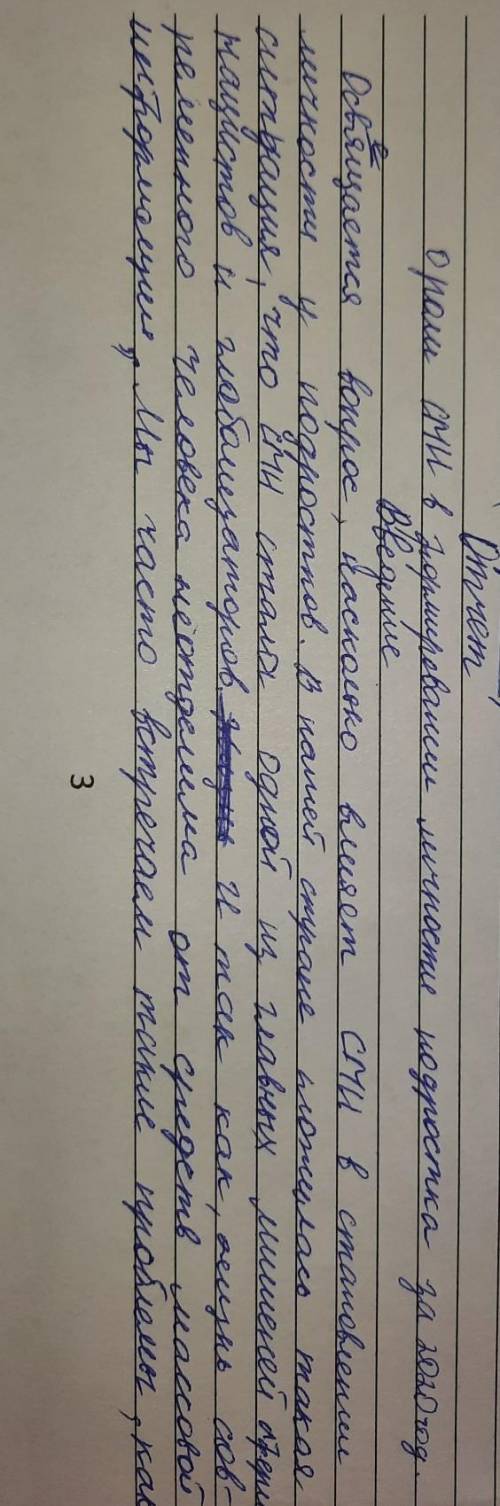 Отчет
о роли СМИ в формировании личности подростка за 2020 год.
Введение
Освещается вопрос, насколько влияет СМИ в становлении
личности у подростков. В нашей стране сложилась такая
ситуация, что СМИ стали одной из главных мишеней
нацистов и глобализаторов. И так как, жизнь сов-
ременного человека неотделима от средств массовой
информации, Мы часто встречаем такие проблемы, как
3